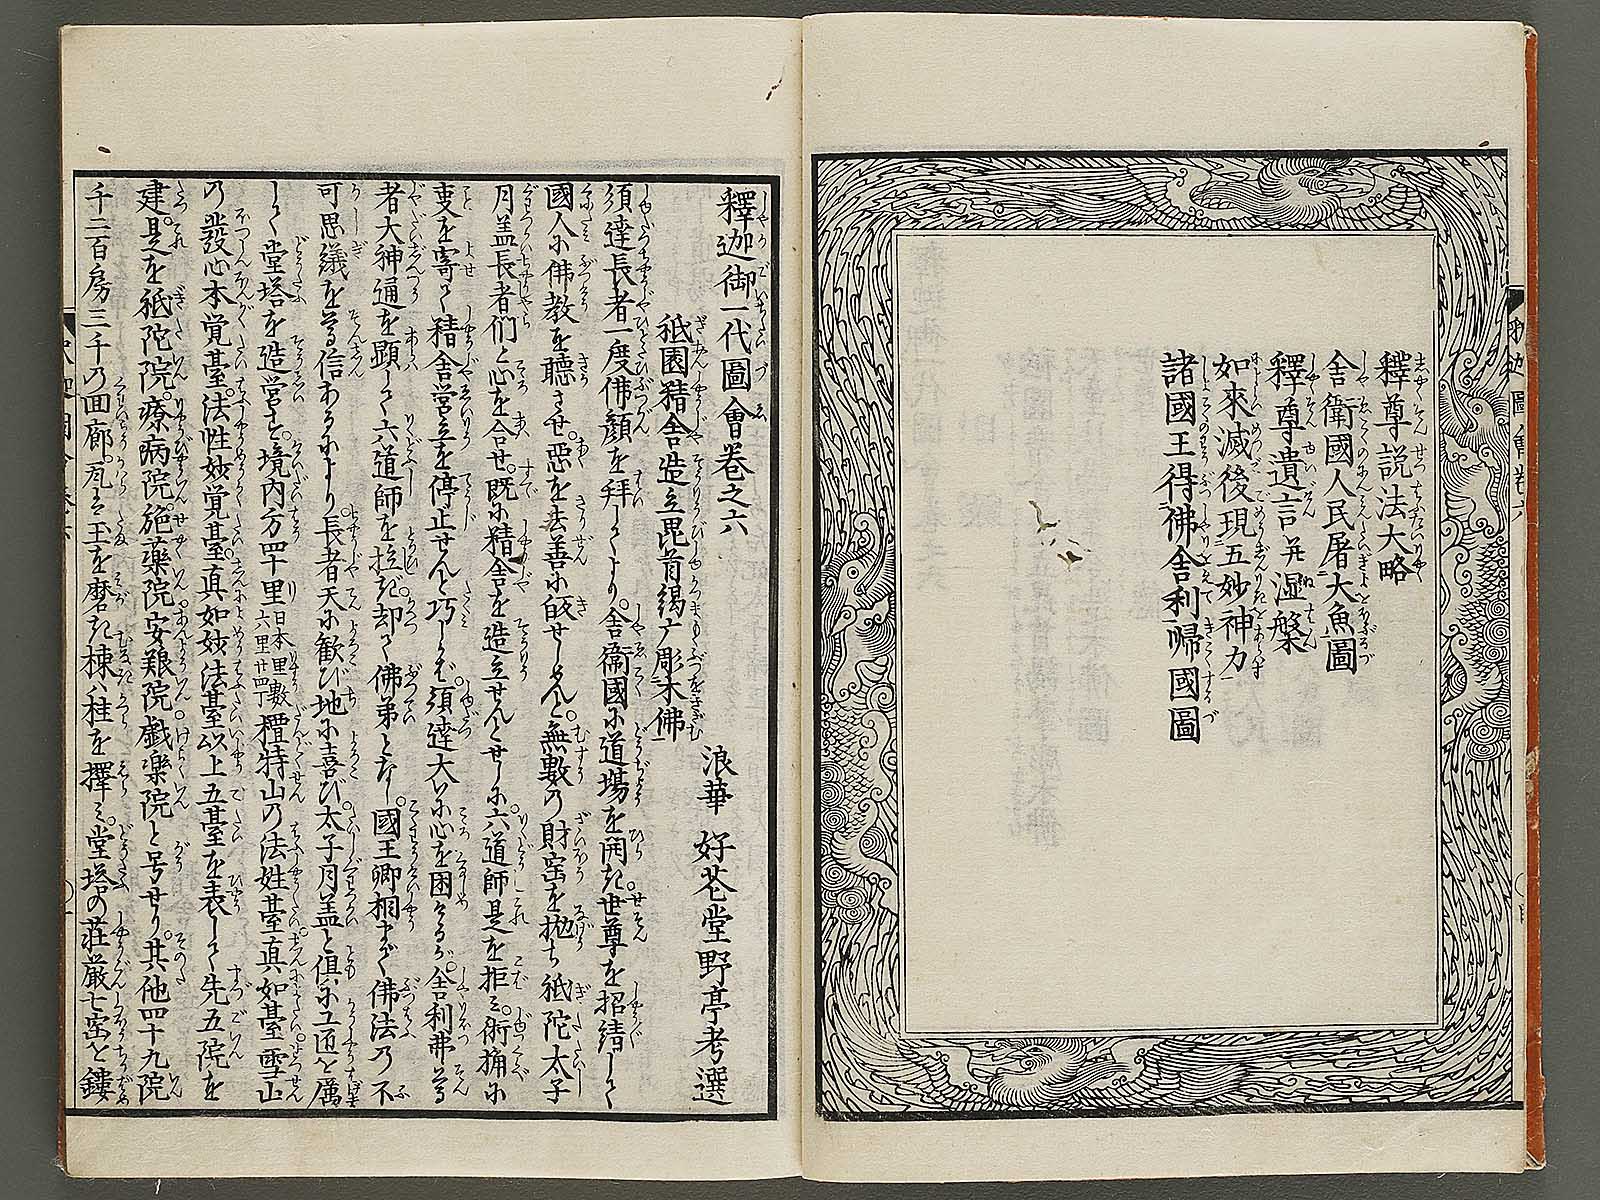 釋尊説法大略
舎衛國人民屠大魚圖
釋尊遺言并湼槃
如來滅後現五妙神力
諸國王得佛舎利帰國圖
釋迦御一代圖會卷之六
浪華 好花堂野亭考選
祇園精舎造立毘首羯广彫木佛
須達長者一度佛顔を拝してより。舎衞國に道場を開き。世尊を招結して
國人に佛教を聴させ。悪を去善に皈せしめんと。無數の財宝を抛ち祇陀太子
月盖長者们と心を合せ。既に精舎を造立せんとせしに六道師是を拒ミ。術捔に
支を寄て精舎営立を停止せんと巧しかば。須達大いに心を困めるが。舎利弗尊
者大神通を顕して六道師を拉ぎ。却て佛弟となし。國王卿相まで佛法の不
可思議を尊信あるにより。長者天に歓び地に喜び。太子月盖と倶に工匠を属
して堂塔を造営す。境内方四十里日本里數六里廿四丁檀特山の法姓臺真如臺雪山
の發心本覚臺。法性妙覚臺。真如妙法臺以上五臺を表して先五院を
建。是を祇陀院。療病院。施藥院。安艱院。戯樂院と号せり。其他四十九院
千二百房三千の回廊。瓦は玉を磨き棟は桂を擇ミ。堂塔の荘厳七宝を鏤